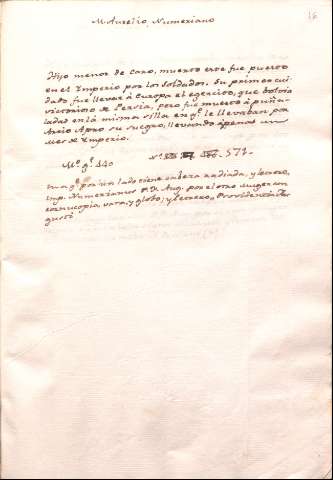 M. Aurelio, Numeriano
16
Hijo menor de Caro, muerto este fue puesto
en el Imperio por los Soldados. Su primer cui-
dado fue llevar à Europa el egercito, que bolvia
victorioso de Persia, pero fue muerto à puña-
ladas en la misma silla en qe. le llevaban por
Arrio Apro su suegro, llevando àpenas un
mes de Imperio.
Mo. gl. 440 571.
por un lado tiene cabeza radiada, y letrero,
Imp. Numerianus P. F. Aug. por el otro muger con
cornucopia, vara, y globo; y letrero, Providentia Au-
gusti